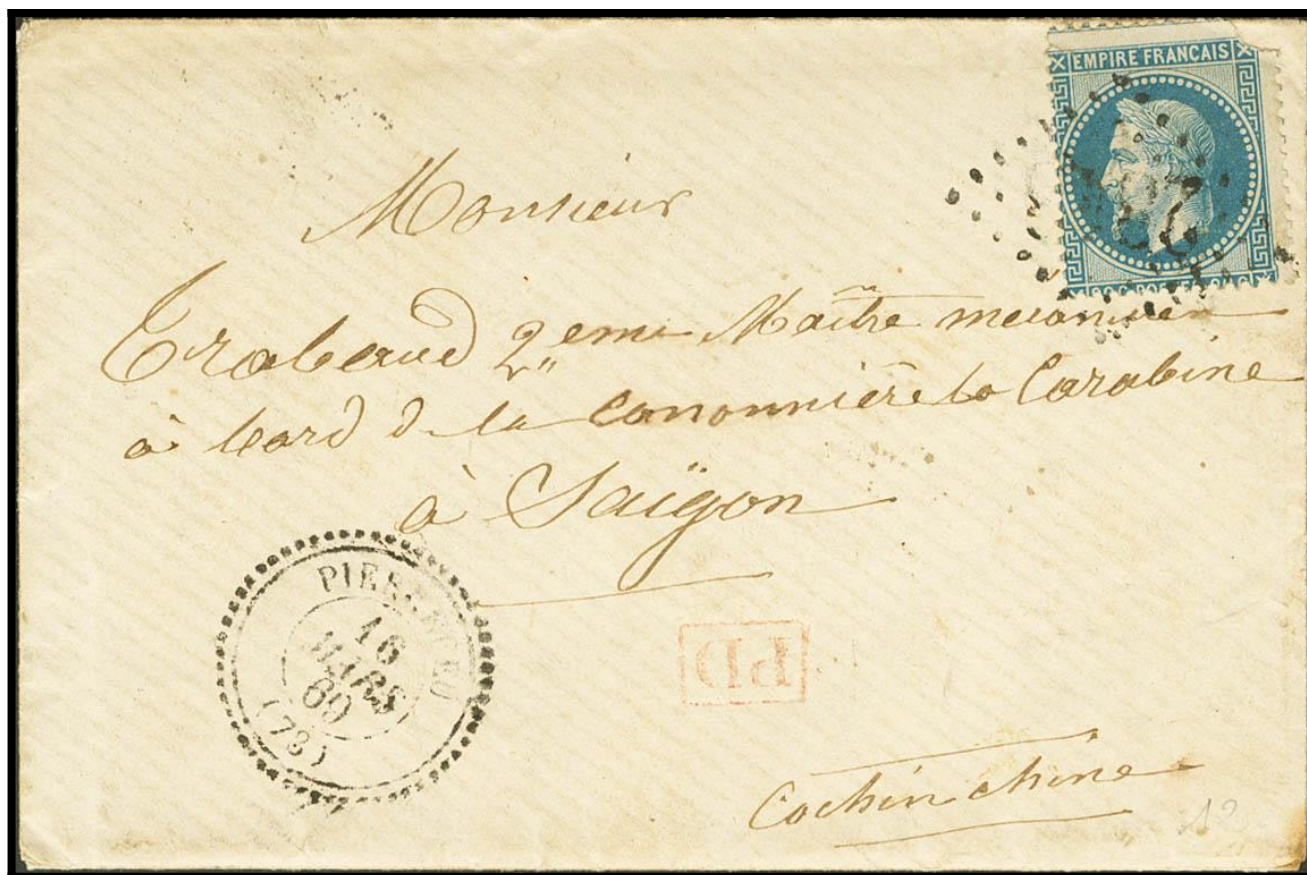 EMPIRE FRANÇAIS
Monsieur
Trabaud 2eme Maître mecanicien
à bord de la canonnière la Carabine
à Saïgon
16
MARS
(78)
PD
Cochinchine